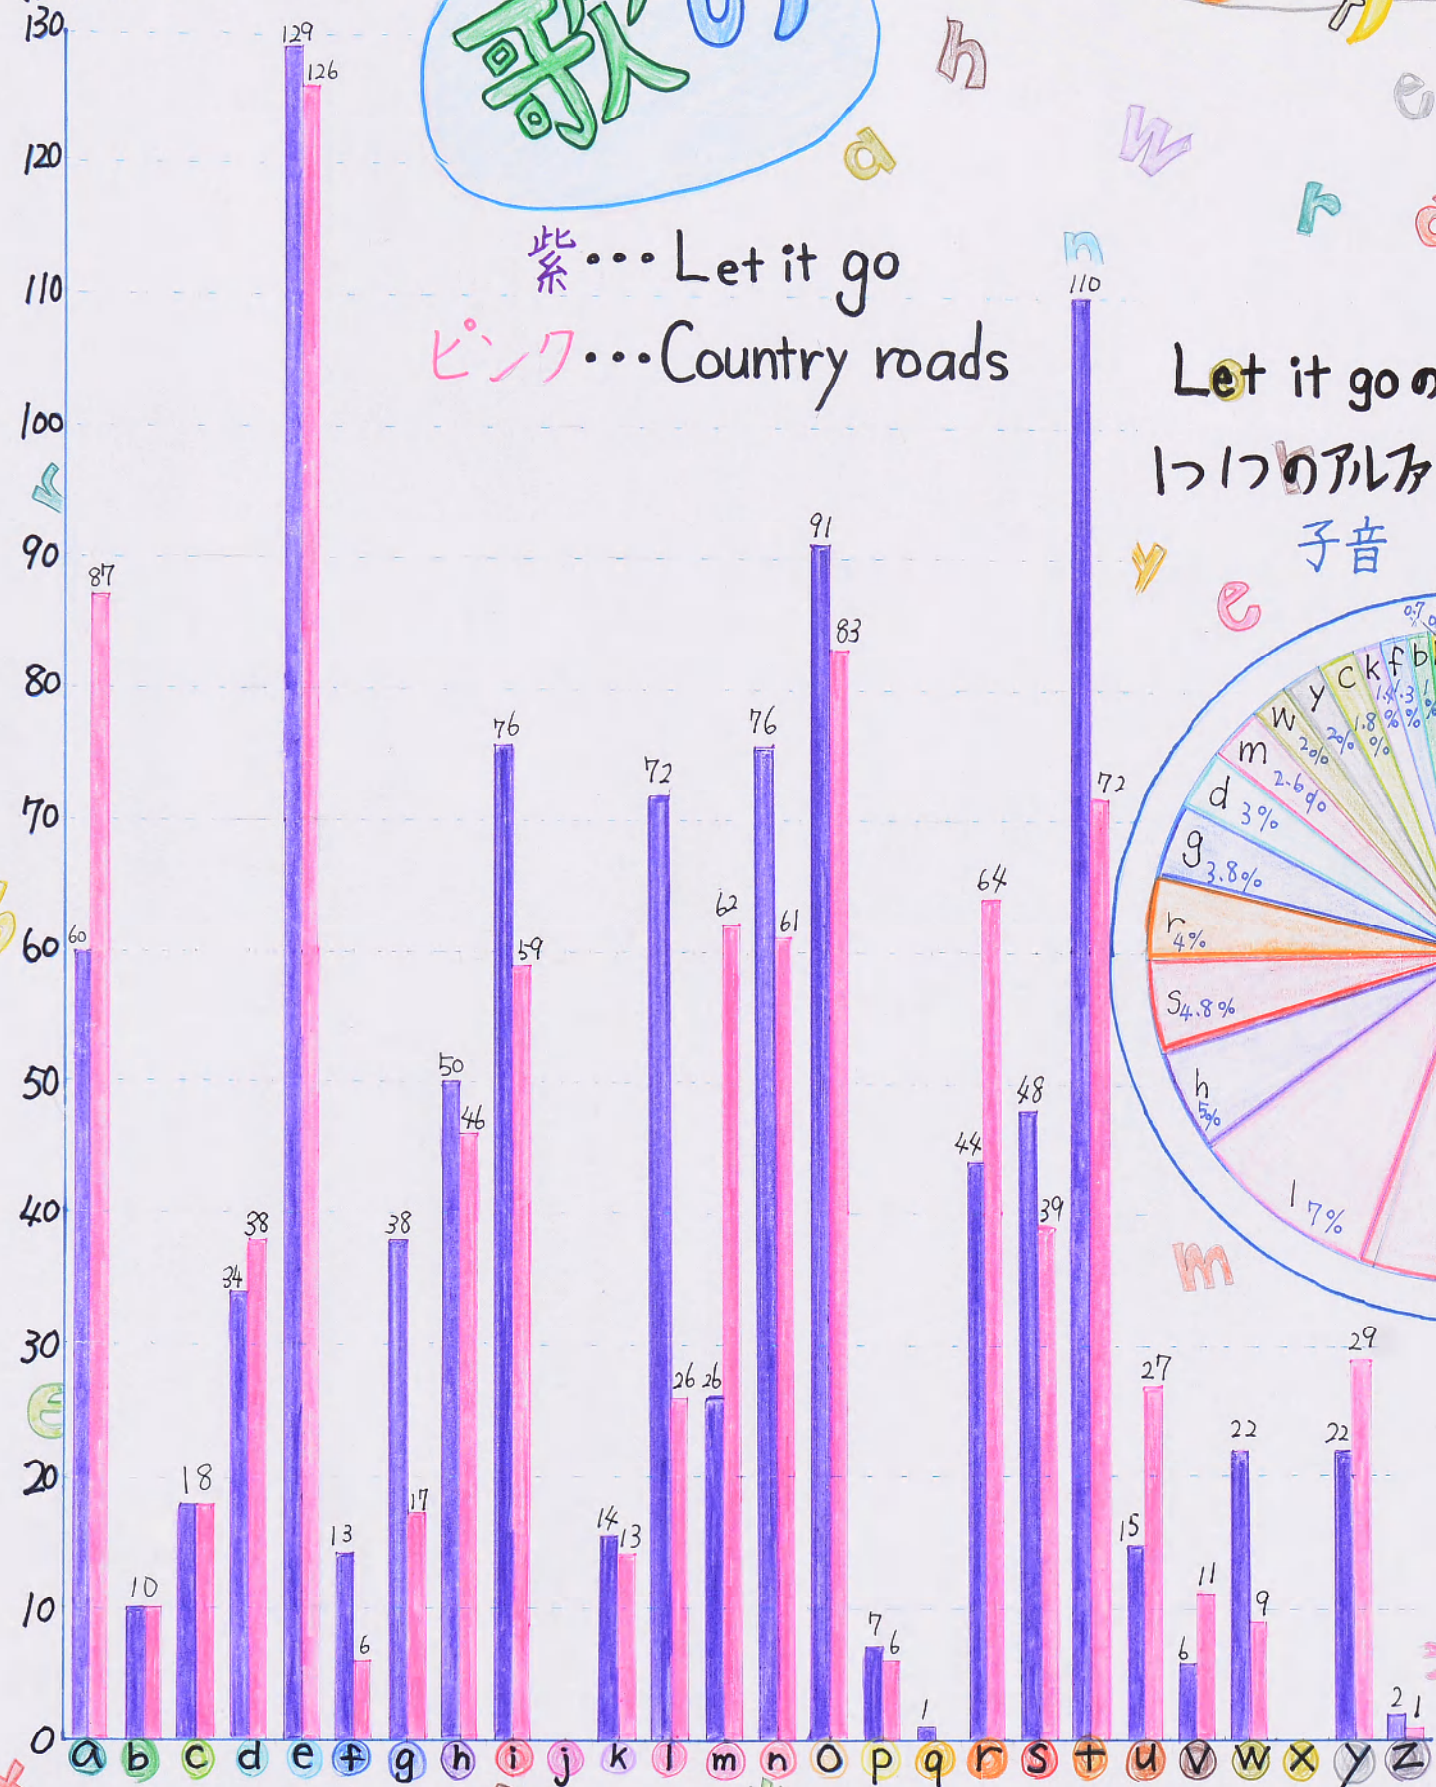 歌の
紫・・・Let it go
ピンク・・・Country roads
Let it goの
1つ1つのアルファ
子音
130
120
110
100
90
80
70
60
50
40
30
20
10
0
60 87
10
18
34 38
129 126
13 6
38 17
50 46
76 59
14 13
72 26
26 62
76 61
91 83
7 6
1
44 64
48 39
110 72
15 27
6 11
22 9
22 29
2 1
a b c d e f g h i j k l m n o p q r s t u v w x y z
0.7%
b 1%
f 1.3%
k 1.4%
c 1.8%
y 2%
w 2%
m 2.6%
d 3%
g 3.8%
r 4%
s 4.8%
h 5%
l 7%
h
a
w
e
r
n
r
y
e
h
m
e